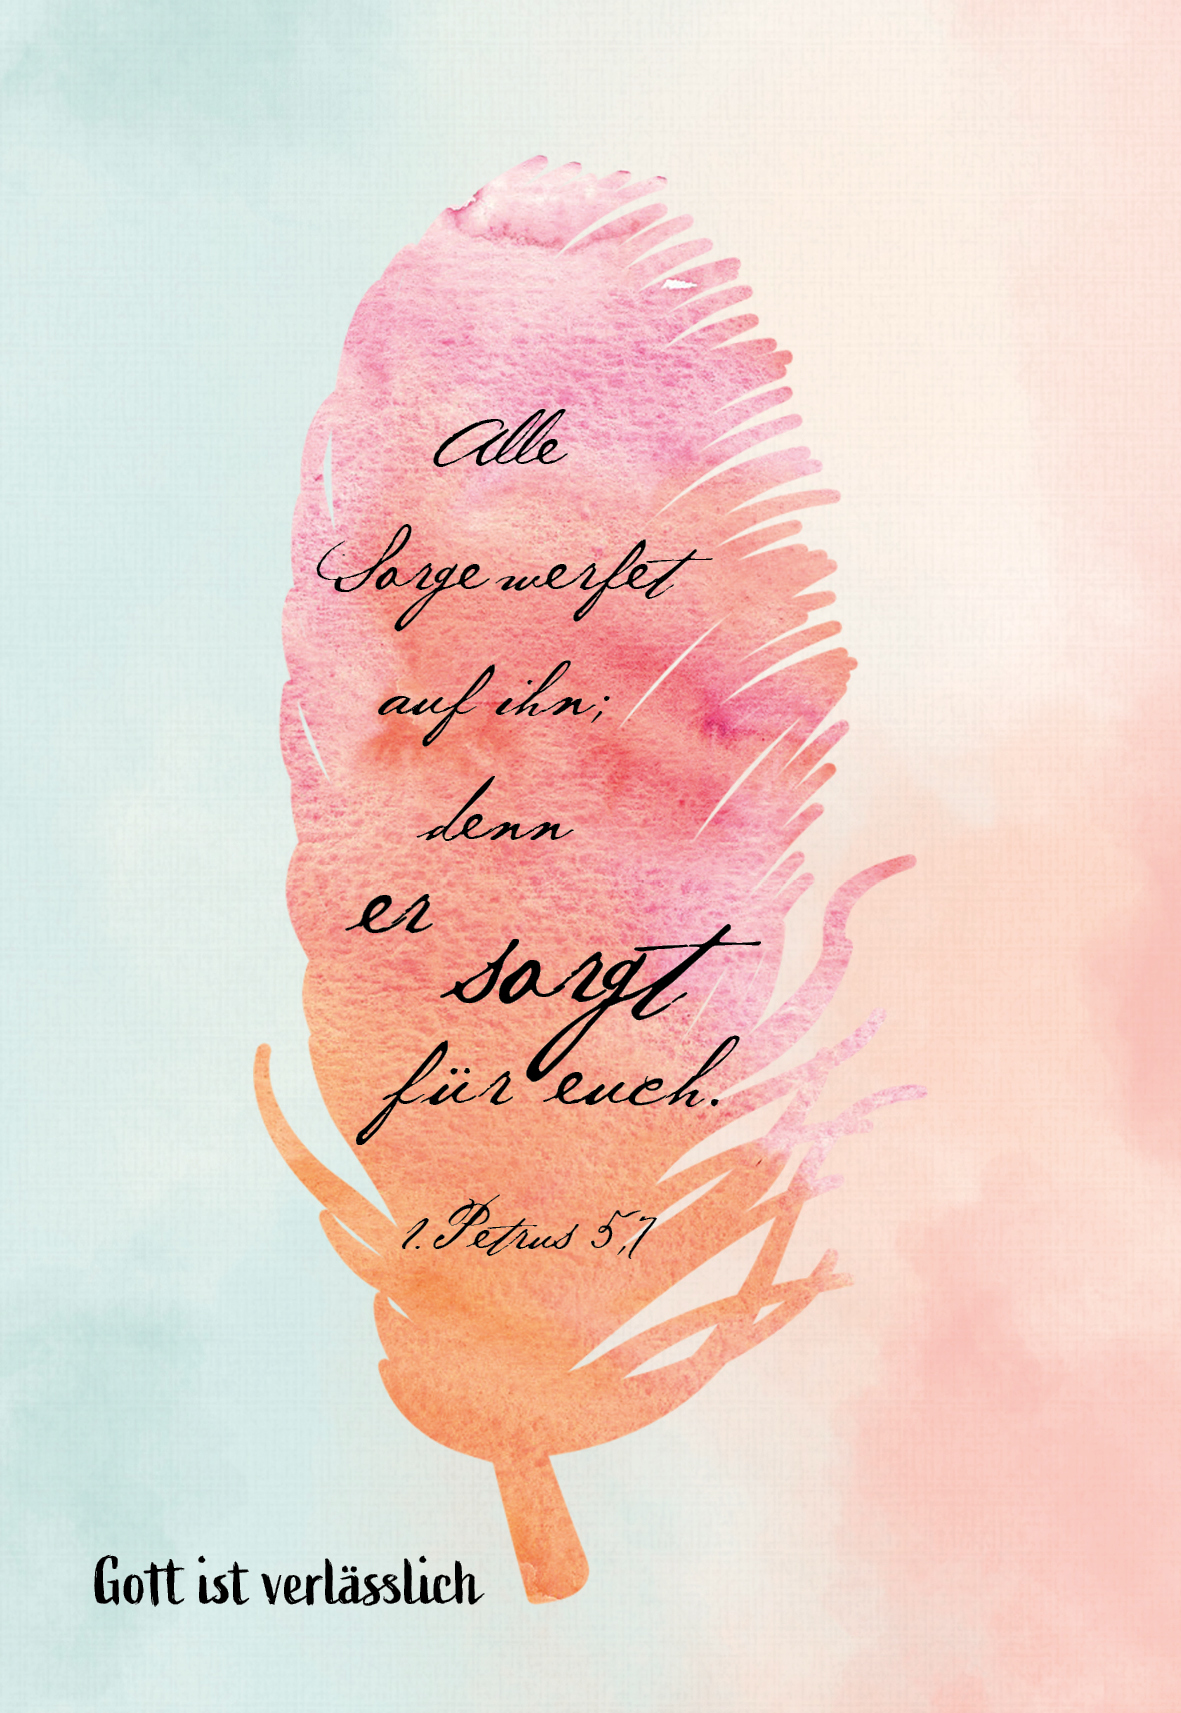 Alle
Sorge werfet
auf ihn;
denn
er
sorgt
für euch.
1. Petrus 5,7
Gott ist verlässlich